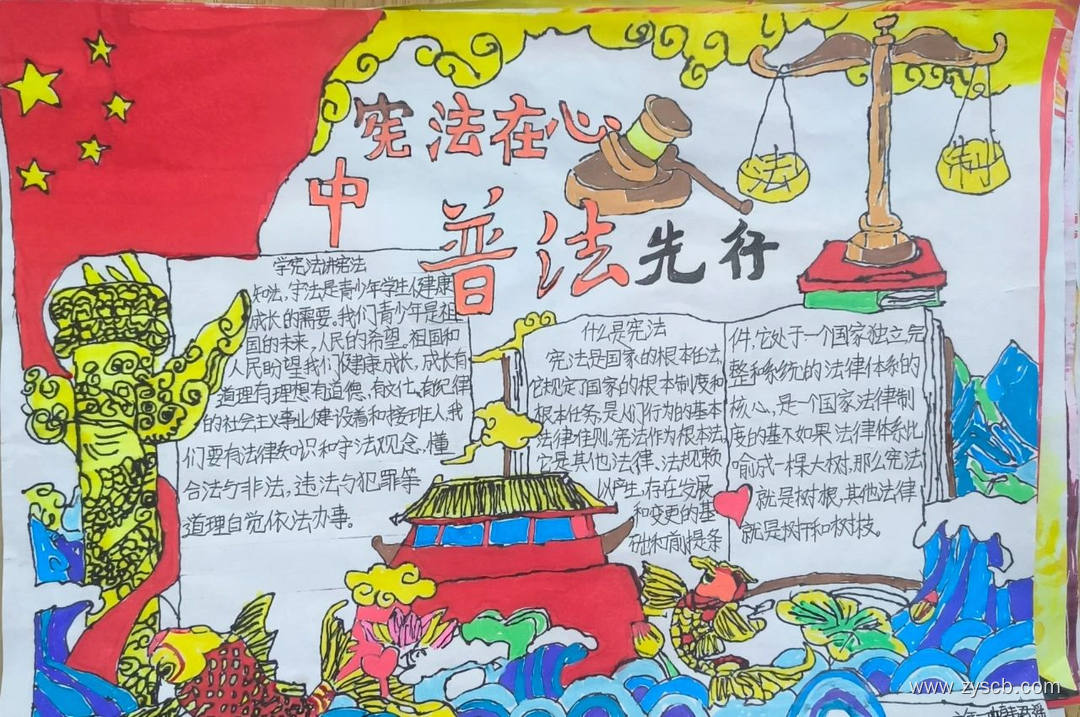 宪法在心
中
普法先行
法
制
学宪法讲宪法
知法,守法是青少年学生健康
成长的需要。我们青少年是祖
国的未来,人民的希望。祖国和
人民盼望我们健康成长,成长有
道理有理想有道德、有文化、有纪律
的社会主义事业健设着和接班人我
们要有法律知识和守法观念,懂
合法与非法,违法与犯罪等
道理自觉依法办事。
什么是宪法
宪法是国家的根本任法
它规定了国家的根本制度和
根本任务,是人们行为的基本
法律准则。宪法作为根本法
它是其他法律、法规赖
以产生,存在发展
和变更的基
础和前提条
件,它处于一个国家独立完
整和系统的法律体系的
核心,是一个国家法律制
度的基不如果法律体系比
喻成一棵大树,那么宪法
就是树根,其他法律
就是树杆和树枝。
www.zyscb.com